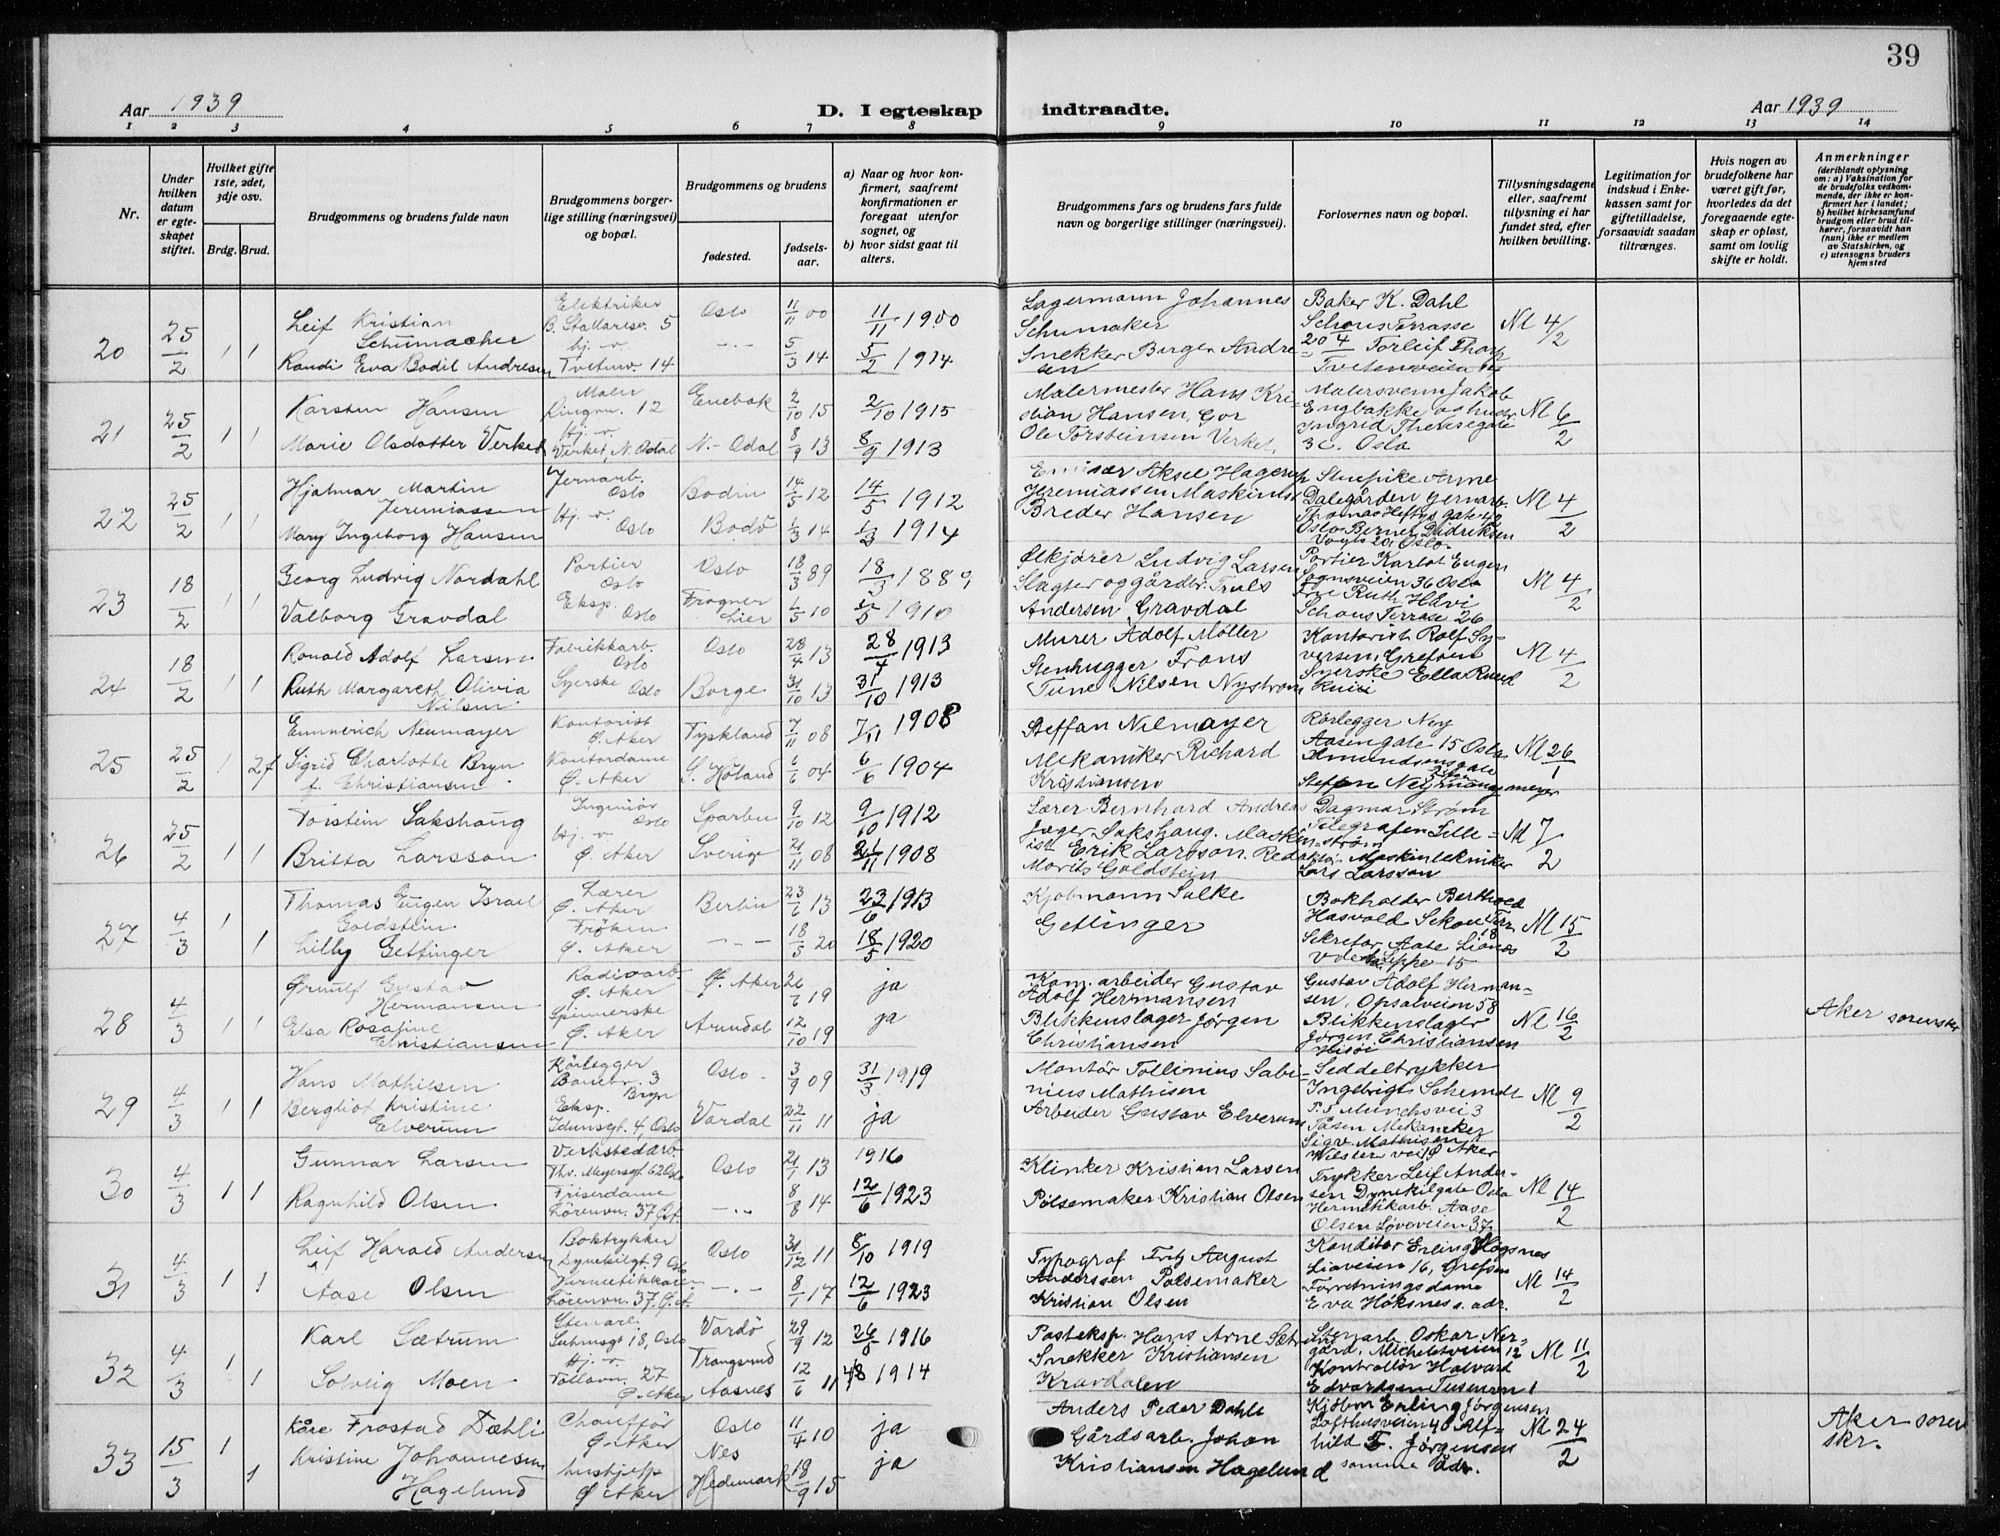 39
Aar 1939
D. I egteskap indtraadte.
Aar 1939
1 2 3 4 5 6 7 8 9 10 11 12 13 14
Nr.
Under hvilken datum er egteskapet stiftet.
Hvilket gifte 1ste, 2det, 3dje osv.
Brdg. Brud.
Brudgommens og brudens fulde navn
Brudgommens borgerlige stilling (næringsvei) og bopæl.
Brudgommens og brudens
fødested.
fødselsaar.
a) Naar og hvor konfirmert, saafremt konfirmationen er foregaat utenfor sognet, og
b) hvor sidst gaat til alters.
Brudgommens fars og brudens fars fulde navn og borgerlige stillinger (næringsvei).
Forlovernes navn og bopæl.
Tillysningsdagene eller, saafremt tillysning ei har fundet sted, efter hvilken bevilling.
Legitimation for indskud i Enkekassen samt for giftetilladelse, forsaavidt saadan tiltrænges.
Hvis nogen av brudefolkene har været gift før, hvorledes da det foregaaende egteskap er opløst, samt om lovlig skifte er holdt.
Anmerkninger (deriblandt oplysning om: a) Vaksination for de brudefolks vedkommende, der ikke er konfirmert her i landet; b) hvilket kirkesamfund brudgom eller brud tilhører, forsaavidt han (hun) ikke er medlem av Statskirken, og c) utensogns bruders hjemsted
20 25/2 1 1
Leif Kristian Schumacher
Elektriker B. Stallaresv. 5
Oslo 11/11 00 11/11 1900
Lagermann Johannes Schumaker
Baker K. Dahl Schous Terrasse
Nl 4/2
Randi Eva Bodil Andresen
hj. v. Tvetenv. 14
-"- 5/3 14 5/2 1914
Snekker Birger Andresen
Torleif Thorp Tvetenveien
21 25/2 1 1
Karsten Hansen
Maler Ringvn. 12
Enebak 2/10 15 2/10 1915
Malermester Hans Kristian Hansen, Gor
Malersvenn Jakob Engbakke og hustr
Nl 6/2
Marie Olsdatter Verket
Hj. v. Verket, N. Odal
N. Odal 8/9 13 8/9 1913
Ole Torsteinsen Verket,
Ingrid Theresegate 3c. Oslo
22 25/2 1 1
Hjalmar Martin Jeremiassen
Jernarb. Oslo
Bodin 14/5 12 14/5 1912
Aksel Hagerup Jeremiassen Maskinist
Arne Dalegården Jernarb. Thomas Heftyes gate 42
Nl 4/2
Mary Ingeborg Hansen
Hj. v. Oslo
Bodø 1/3 14 1/3 1914
Breder Hansen
Oslo Berner Didriksen Vogts 20, Oslo.
23 18/2 1 1
Georg Ludvig Nordahl
Portier Oslo
Oslo 18/3 89 18/3 1889
Ølkjører Ludvig Larsen
Portier Karlot Eugen Sognsveien 36 Oslo
Nl 4/2
Valborg Gravdal
Eksp. Oslo
Frogner Lier 1/5 10 1/5 1910
Slagter og gårdbr. Truls Andersen Gravdal
Ruth Håvi Schous Terrasse 26
24 18/2 1 1
Ronald Adolf Larsen
Fabrikkarb. Oslo
Oslo 28/4 13 28/4 1913
Murer Adolf Møller
Kontorist Rolf Syversen, Grefsen
Nl 4/2
Ruth Margareth Olivia Nilsen
Syerske Oslo
Borge 31/10 13 31/10 1913
Stenhugger Frans Tune Nilsen Nystrøm
Syerske Ella Ruud
25 25/2 1 2 f
Emmerich Neumayer
Kontorist Ø. Aker
Tyskland 7/11 08 7/11 1908
Steffan Niemayer
Rørlegger Ney Aasengate 15 Oslo
Nl 26/1
Sigrid Charlotte Bryn f. Christiansen
Kontordame Ø. Aker
S. Høland 6/6 04 6/6 1904
Mekaniker Richard Kristiansen
Edmundsensgate
26 25/2 1 1
Torstein Sakshaug
Ingeniør Oslo
Sparbu 9/10 12 9/10 1912
Lærer Bernhard Andreas Jæger Sakshaug.
Dagmar Strøm Telegrafen Lillestrøm
Nl 7/2
Britta Larsson
Hj. v. Ø. Aker
Sverige 21/11 08 21/11 1908
Maskinist Erik Larsson.
Maskintekniker Lars Larsson
27 4/3 1 1
Thomas Eugen Israel Goldstein
Lærer Ø. Aker
Berlin 23/6 13 23/6 1913
Redaktør Morits Goldstein
Bokholder Berthold Hasvold Skou Terr 18
Nl 15/2
Lilly Gettinger
Frøken Ø. Aker
-"- 18/5 20 18/5 1920
Kjøbmann Salke Gettinger
Sekretær Aase Lionæs
28 4/3 1 1
Ørnulf Gustav Hermansen
Radioarb. Ø. Aker
Ø. Aker 26/6 19 ja
Kom. arbeider Gustav Adolf Hermansen
Gustav Adolf Hermansen, Opsalveien 58
Nl 16/2
Aker sorenskr
Elsa Rosaline Christiansen
Spinnerske Ø. Aker
Arendal 12/10 19 ja
Blikkenslager Jørgen Christiansen
Blikkenslager Jørgen Christiansen Hisøi
29 4/3 1 1
Hans Mathisen
Rørlegger Banebr. 3 Bryn
Oslo 3/9 09 31/3 1919
Montør Tollinius Sabinius Mathisen
Seddeltrykker Ingebrigt Schemdt P. S Munchsvei 3
Nl 9/2
Bergliot Kristine Elverum
Eksp. Idunsgt. 4, Oslo
Vardal 22/11 11 ja
Arbeider Gustav Elverum
Tåsen Mekaniker Sigv. Mathisen
30 4/3 1 1
Gunnar Larsen
Verkstedarb. Thv. Meyersgt. 62 Oslo
Oslo 21/1 13 1916
Klinker Kristian Larsen
Trykker Leif Andersen Dynekilgate Oslo
Nl 14/2
Ragnhild Olsen
Friserdame Lørenvn. 37 Ø. A.
-"- 8/8 14 12/6 1923
Pølsemaker Kristian Olsen
Hermetikkarb. Aase Olsen Løvveien 37
31 4/3 1 1
Leif Harald Andersen
Boktrykker Dynekilgt. 9 Oslo
Oslo 31/12 11 8/10 1919
Typograf Fritz August Anderssen
Konditor Erling Høgsnes Liaveien 16, Grefsen
Nl 14/2
Aase Olsen
Lørenvn. 37. Ø. A.
-"- 8/1 17 12/6 1923
Pølsemaker Kristian Olsen
Forretningsdame Eva Høksnes s. adr.
32 4/3 1 1
Karl Sætrum
Stenarb. Suhmsgt 18, Oslo
Vardø 29/9 12 26/8 1916
Posteksp. Hans Arne Sætrum
Stenarb. Oskar Nergård, Micheletsveien 12
Nl 11/2
Solveig Moen
Hj. v. Tollavn. 27 Ø. Aker
Trangsrud Aasnes 12/6 11 1914
Snekker Kristiansen Kravdalen
Kontrollør Halvard Edvardsen
33 15/3 1 1
Kåre Frostad Dæhli
Chauffør Ø. Aker
Oslo 11/4 10 ja
Anders Peder Dahli
Kjøbm Erling Jørgensen Lofthusveien 40
Nl 24/2
Aker sorenskr.
Kristine Johannesen Hagelund
hushjelp Ø. Aker
Nes Hedemark 18/9 15 ja
Gårdsarb. Johan Kristiansen Hagelund
Alfhild F. Jørgensen samme adr.